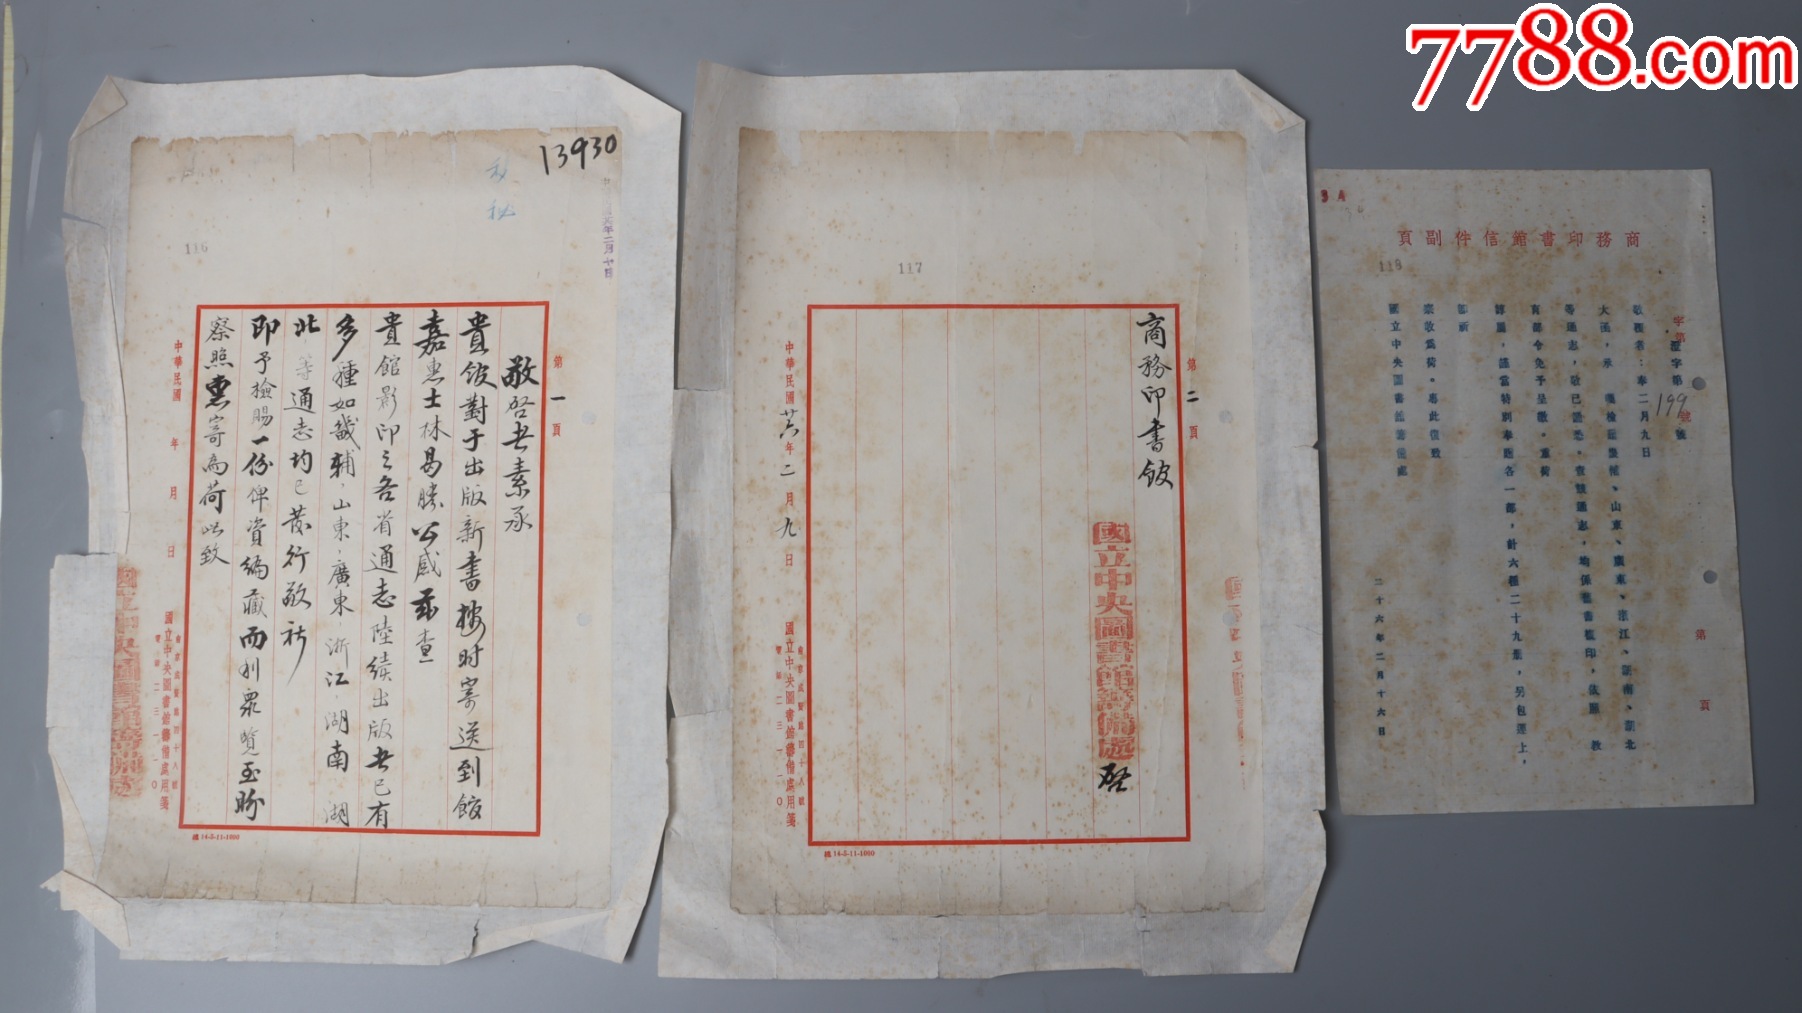 7788.com
13930
秘
116
第一頁
敬啓者素承
貴館對于出版新書按时寄送到館
嘉惠士林曷勝公感兹查
貴館影印之各省通志陸續出版者已有
多種如畿輔、山東、廣東、浙江湖南湖
北等通志均已發行敬祈
即予檢賜一份俾資編藏而利衆覽至盼
察照惠寄爲荷此致
中華民國 年 月 日
國立中央圖書館籌備處用箋
總14-5-11-1000
國立中央圖書館籌備處
117
第二頁
商務印書館
國立中央圖書館籌備處 啓
中華民國廿六年二月九日
國立中央圖書館籌備處用箋
總14-5-11-1000
商務印書館信件副頁
118
字第199號
敬覆者:奉二月九日
大函,承 囑檢
畿輔、山東、廣東、浙江、湖南、湖北
等通志,敬已
查該通志,均係舊書檢印,依照 教
育部令免予呈繳。重荷
諄囑,謹當特別奉贈各一部,計六種二十九册,另包遞上,
卽祈
察收爲荷。專此復致
國立中央圖書館籌備處
二十六年二月十六日
第 頁